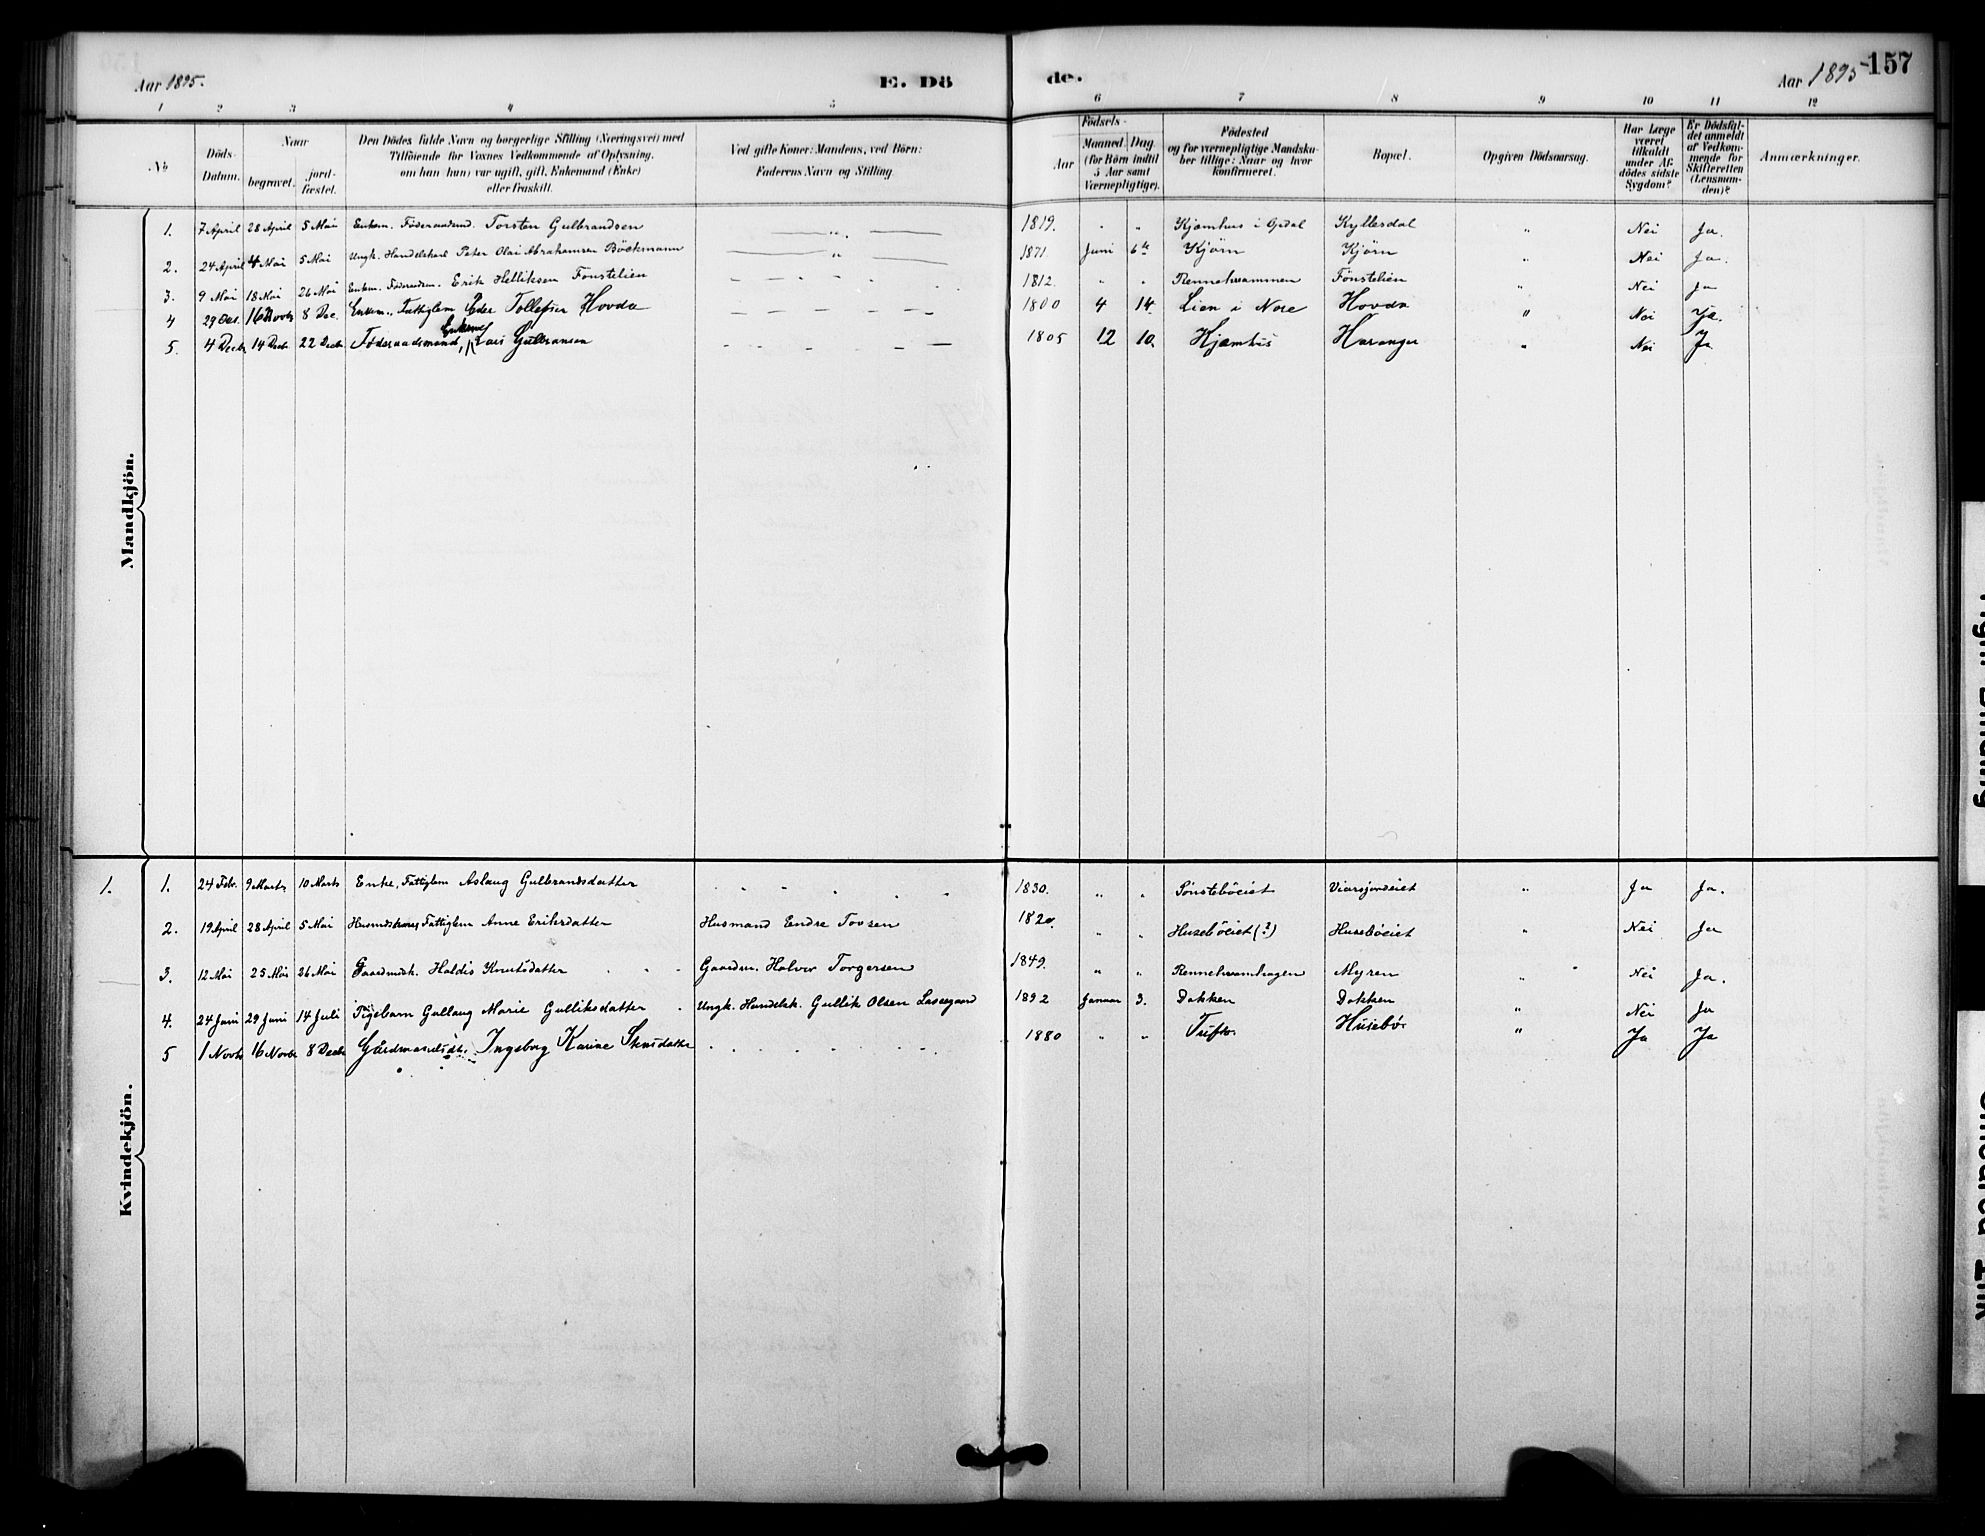 Aar 1895. E. Dö de. Aar 1895 157
1 2 3 4 5 6 7 8 9 10 11 12
No
Döds-Datum.
Naar
begravet.
jord-fæstet.
Den Dödes fulde Navn og borgerlige Stilling (Næringsvei) med
Tilföiende for Voxnes Vedkommende af Oplysning,
om han (hun) var ugift, gift, Enkemand (Enke)
eller fraskilt.
Ved gifte Koner: Mandens, ved Börn:
Faderens Navn og Stilling.
Födsels-
Aar
Maaned Dag
(for Börn indtil
5 Aar samt
Værnepligtige).
Födested
og for værnepligtige Mandsku-
ber tillige: Naar og hvor
konfirmeret.
Bopæl.
Opgiven Dödsaarsag.
Har Læge
været
tilkaldt
under Af-
dödes sidste
Sygdom?
Er Dödsfal-
det anmeldt
af Vedkom-
mende for
Skifteretten
(Lensman-
den)?
Anmærkninger.
Mandkjön.
1. 7 April 28 April 5 Mai Enkem. Föderaadsmd. Torsten Gulbrandsen — " — 1819. " " Kjømhus i Opdal Kyllesdal Nei Ja.
2. 24 April 4 Mai 5 Mai Ungk. Handelskarl Peter Olai Abrahamsen Böckmann — " — 1871 Juni 6te Kjörn Kjörn " Nei Ja.
3. 9 Mai 18 Mai 26 Mai Enkem. Föderaadsm. Erik Helliksen Fönstelien 1812. " " Rennehvammen Fönstelien " Nei Ja
4 29 Oct. 16 Novb 8 Dec. Enkem., Fattiglem Tollefsen Hovda 1800 4 14 Lien i Nore Hovda " Nei Ja.
Enkem
5. 4 Decb 14 Decb 22 Decb Föderaadsmand, Lars Gulbransen 1805 12 10. Kjømhus " Nei Ja
Kvindekjön.
1. 1. 24 Febr. 9 Marts 10 Marts Enke, Fattiglem Aslaug Gulbrandsdatter 1830. " " Sönsteböeiet " Ja Ja.
2. 19 April 28 April 5 Mai Fattiglem Anne Eriksdatter Husmand Endre Tovsen 1820. " " Huseböeiet (?) Huseböeiet " Nei Ja
3. 12 Mai 25 Mai 26 Mai Gaardmdk. Haldis Knutsdatter Gaardm. Halvor Torgersen 1849. " " Rennehvamhagen Myren " Nei Ja.
4. 24 Juni 29 Juni 14 Juli Pigebarn Gullaug Marie Gulliksdatter Ungk. Handelsk. Gullik Olsen 1892 Januar 3. Dokken Dokken " Nei Ja
5 1 Novb 16 Novb 8 Decb Ingeborg Karine 1880 " " Tufto Husebö " Ja Ja